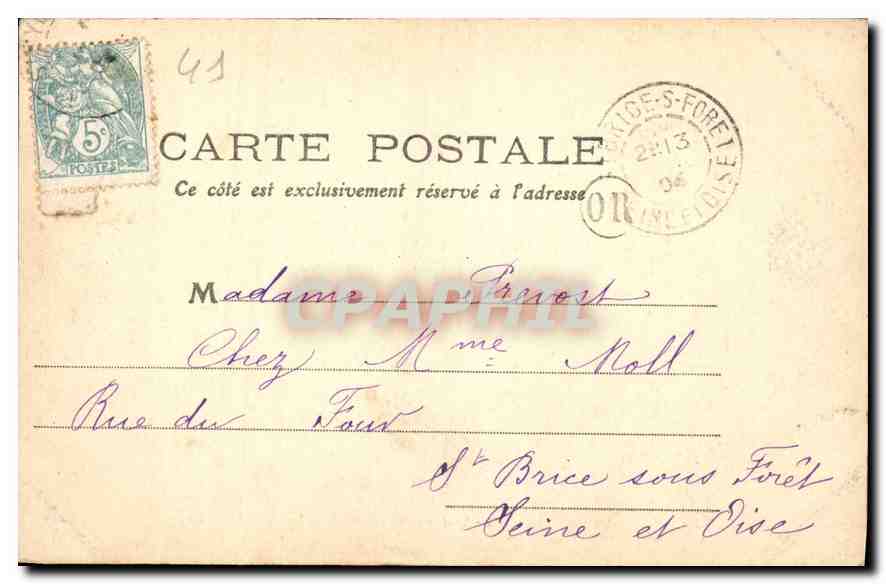 41
5c
POSTES
CARTE POSTALE
Ce côté est exclusivement réservé à l'adresse
BRICE-S-FORET
SEINE ET OISE
13
04
OR
Madame Prevost
CPAPHIL
Chez Mme Moll
Rue du Four
St Brice sous Forêt
Seine et Oise